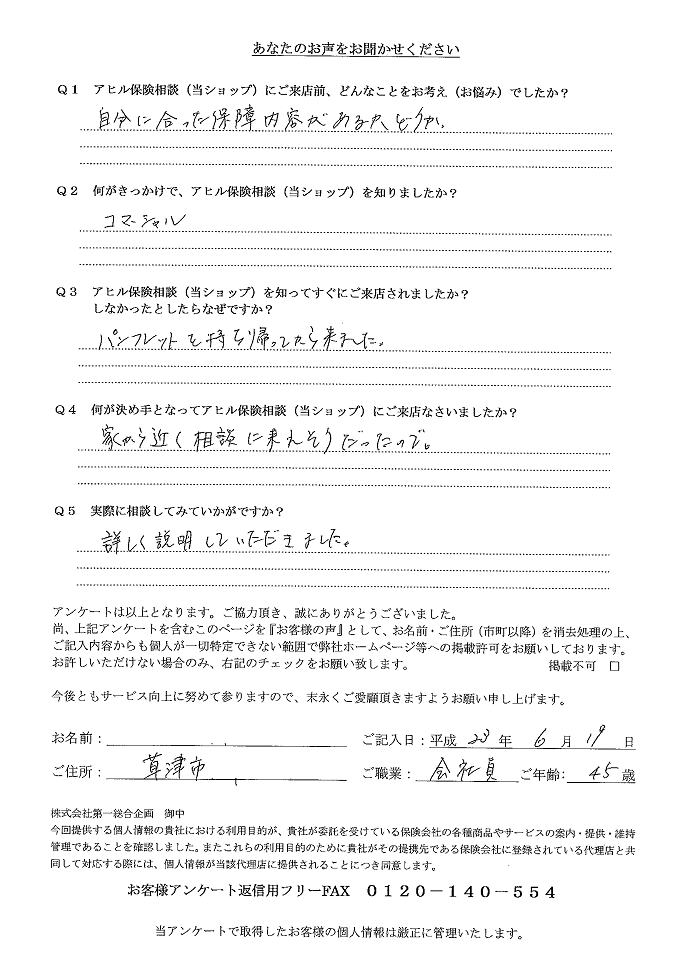 あなたのお声をお聞かせください
Q1 アヒル保険相談（当ショップ）にご来店前、どんなことをお考え（お悩み）でしたか？
自分に合った保障内容があるかどうか。
Q2 何がきっかけで、アヒル保険相談（当ショップ）を知りましたか？
コマーシャル
Q3 アヒル保険相談（当ショップ）を知ってすぐにご来店されましたか？
しなかったとしたらなぜですか？
パンフレットを持ち帰ってから来ました。
Q4 何が決め手となってアヒル保険相談（当ショップ）にご来店なさいましたか？
家から近く相談に来れそうだったので。
Q5 実際に相談してみていかがですか？
詳しく説明していただきました。
アンケートは以上となります。ご協力頂き、誠にありがとうございました。
尚、上記アンケートを含むこのページを『お客様の声』として、お名前・ご住所（市町以降）を消去処理の上、
ご記入内容からも個人が一切特定できない範囲で弊社ホームページ等への掲載許可をお願いしております。
お許しいただけない場合のみ、右記のチェックをお願い致します。 掲載不可 □
今後ともサービス向上に努めて参りますので、末永くご愛顧頂きますようお願い申し上げます。
お名前： ご記入日：平成 23 年 6 月 19 日
ご住所： 草津市 ご職業： 会社員 ご年齢： 45 歳
株式会社第一総合企画 御中
今回提供する個人情報の貴社における利用目的が、貴社が委託を受けている保険会社の各種商品やサービスの案内・提供・維持
管理であることを確認しました。またこれらの利用目的のために貴社がその提携先である保険会社に登録されている代理店と共
同して対応する際には、個人情報が当該代理店に提供されることにつき同意します。
お客様アンケート返信用フリーFAX 0120－140－554
当アンケートで取得したお客様の個人情報は厳正に管理いたします。